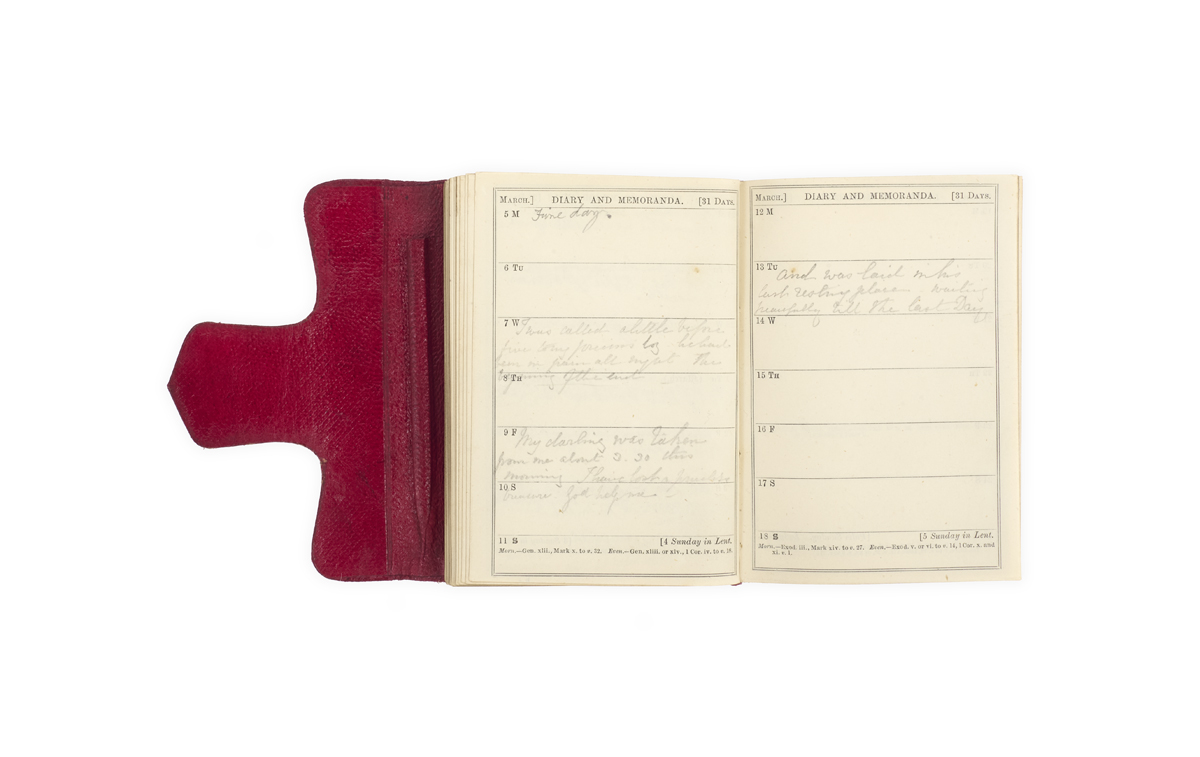 MARCH.] DIARY AND MEMORANDA. [31 DAYS.
5 M Fine day.
6 TU
7 W I was called a little before
five to my precious he had
been in pain all night The
beginning of the end
8 TH
9 F My darling was taken
from me about 3-30 this
morning I have lost a priceless
treasure God help me!
10 S
11 S [4 Sunday in Lent.
Morn.—Gen. xlii., Mark x. to v. 32. Even.—Gen. xliii. or xlv., 1 Cor. iv. to v. 18.
MARCH.] DIARY AND MEMORANDA. [31 DAYS.
12 M
13 TU And was laid in his
last resting place waiting
peacefully till the Last Day
14 W
15 TH
16 F
17 S
18 S [5 Sunday in Lent.
Morn.—Exod. iii., Mark xiv. to v. 27. Even.—Exod. v. or vi. to v. 14, 1 Cor. x. and
xi. v. 1.